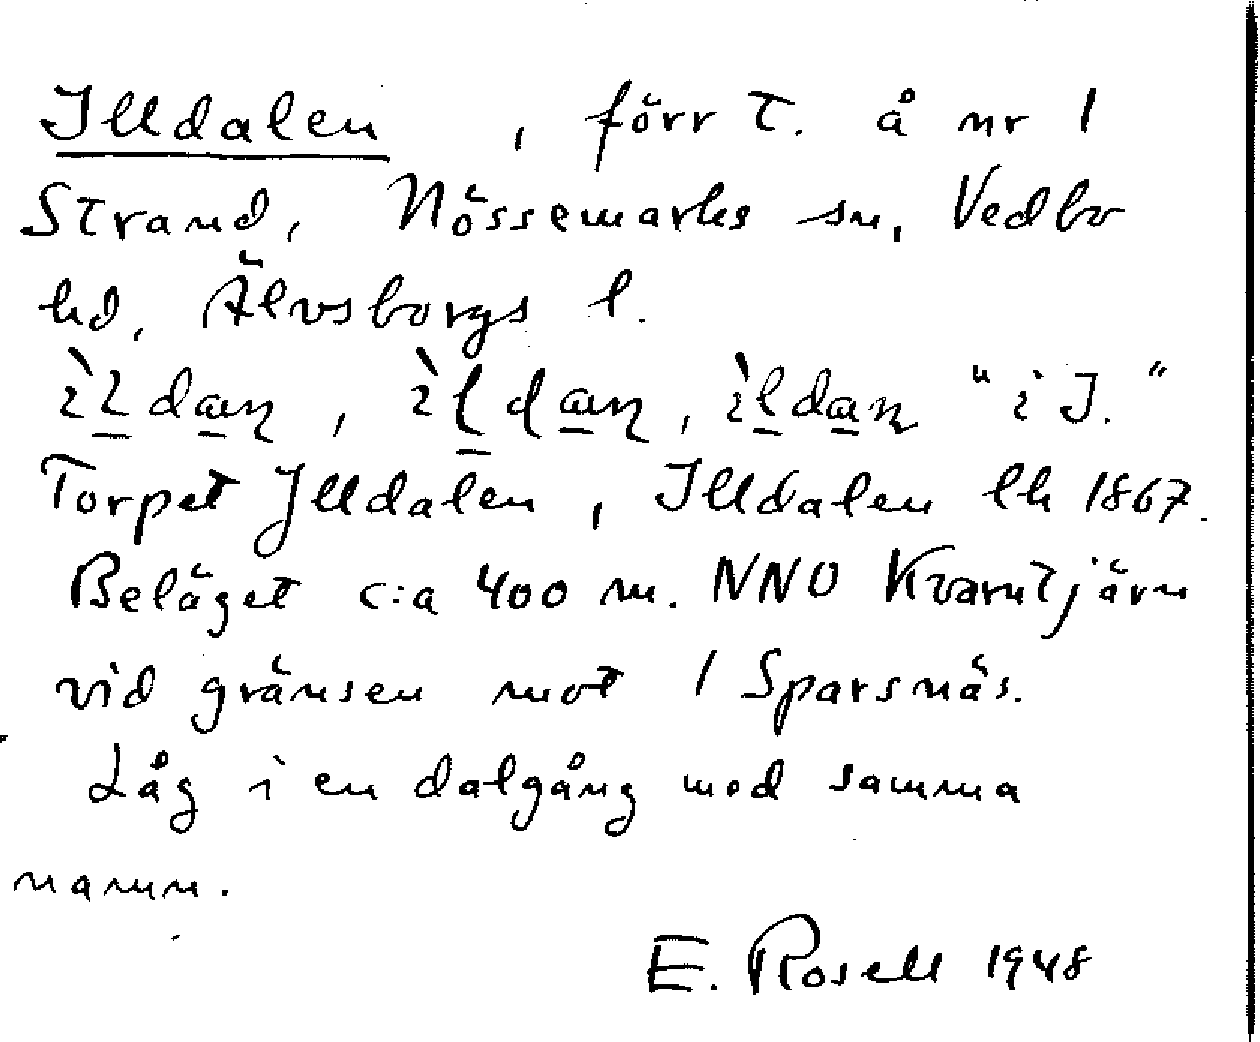 Illdalen, förr T. å nr 1
Strand, Nössemarks sn, Vedbo
hd, Älvsborgs l.
"i I."
Torpet Jlldalen, Illdalen lh 1867.
Beläget c:a 400 m. NNO Kvarntjärn
vid gränsen mot 1 Sparsnäs.
Låg i en dalgång med samma
namn.
E. Rosell 1948